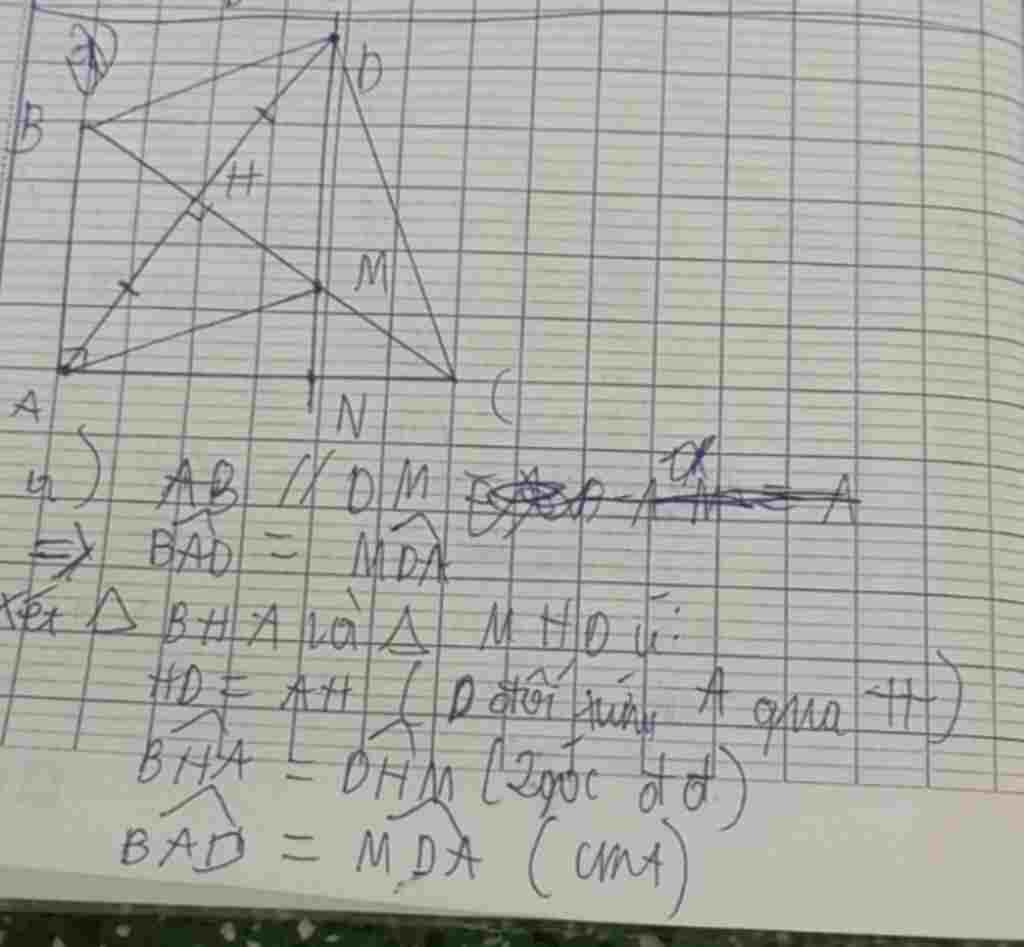 B
D
H
M
A
N
C
a) AB // DM
=> BAD = MDA
Xét Δ BHA và Δ MHD có:
HD = AH ( D đối xứng A qua H )
BHA = DHM (2 góc đđ)
BAD = MDA (cmt)